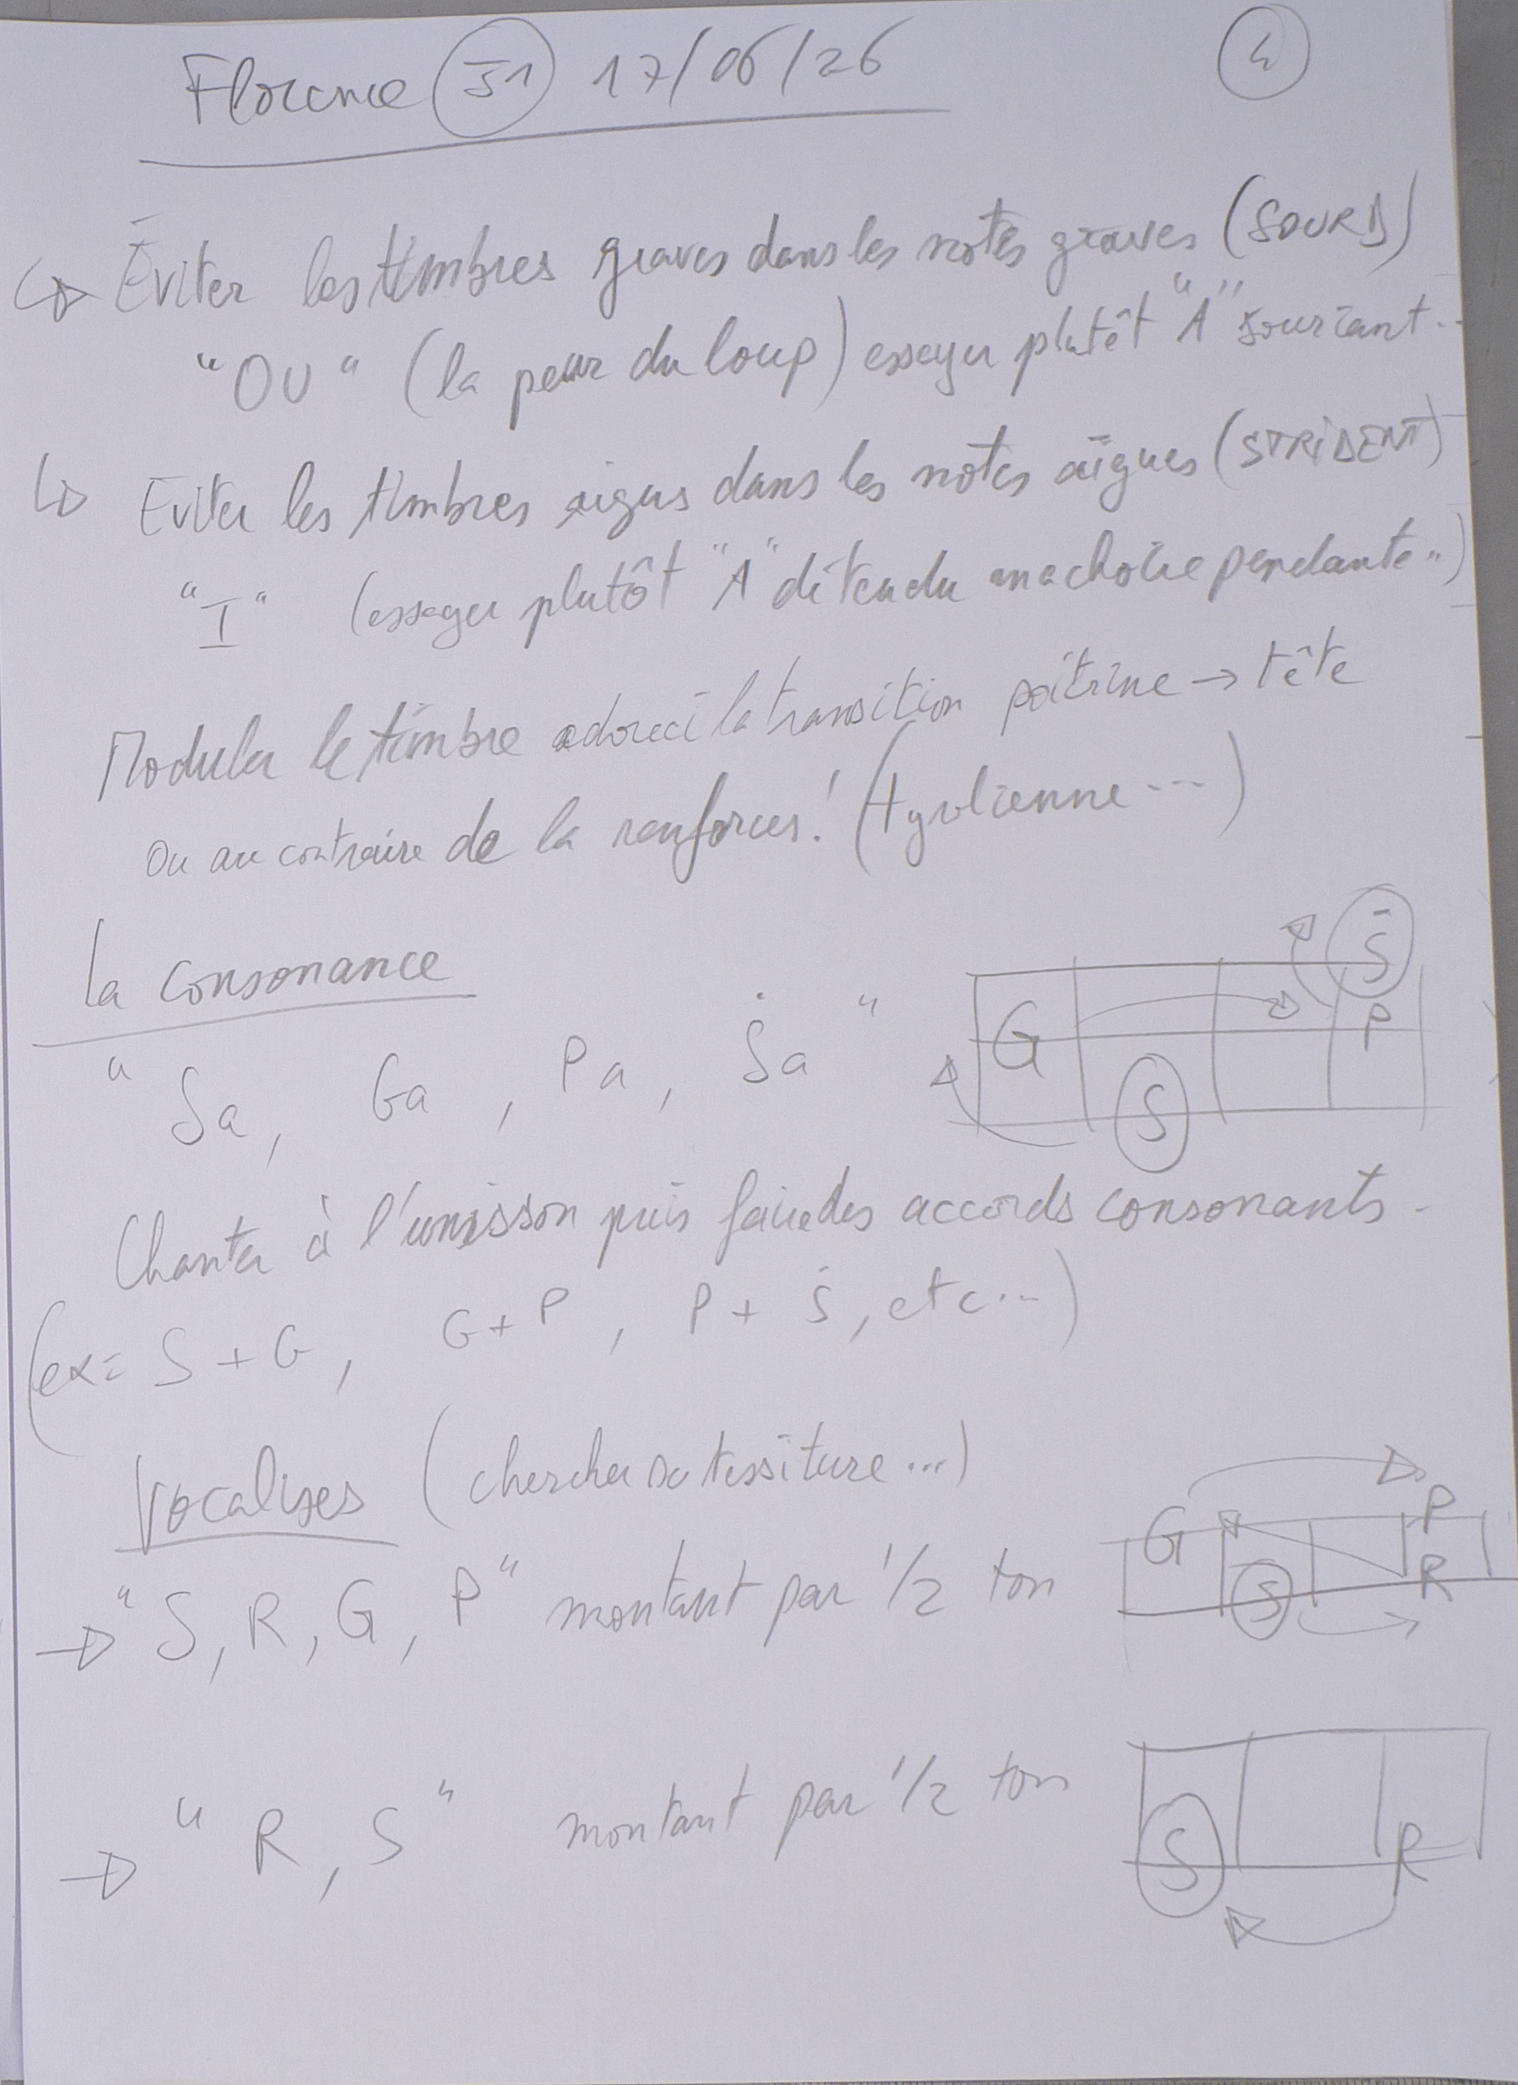 Florence 31 17/06/26 4
Éviter les timbres graves dans les notes graves (SOURD)
"OU" (la peur du loup) essayer plutêt "A" souriant..
Eviter les timbres aigus dans les notes aïgues (STRIDENT)
"I" (essayer plutôt "A" détendu machoire pendante..)
Moduler le timbre adouci la transition poitrine → tête
Ou au contraire de la renforcer! (tyrolienne...)
la consonance
"Sa, Ga, Pa, Ṡa"
G P S̄
S
Chanter à l'unisson puis faire des accords consonants.
(ex= S + G, G + P, P + Ṡ, etc...)
Vocalises (chercher sa tessiture...)
→ "S, R, G, P" montant par 1/2 ton
G P
S R
→ "R, S" montant par 1/2 ton
S R